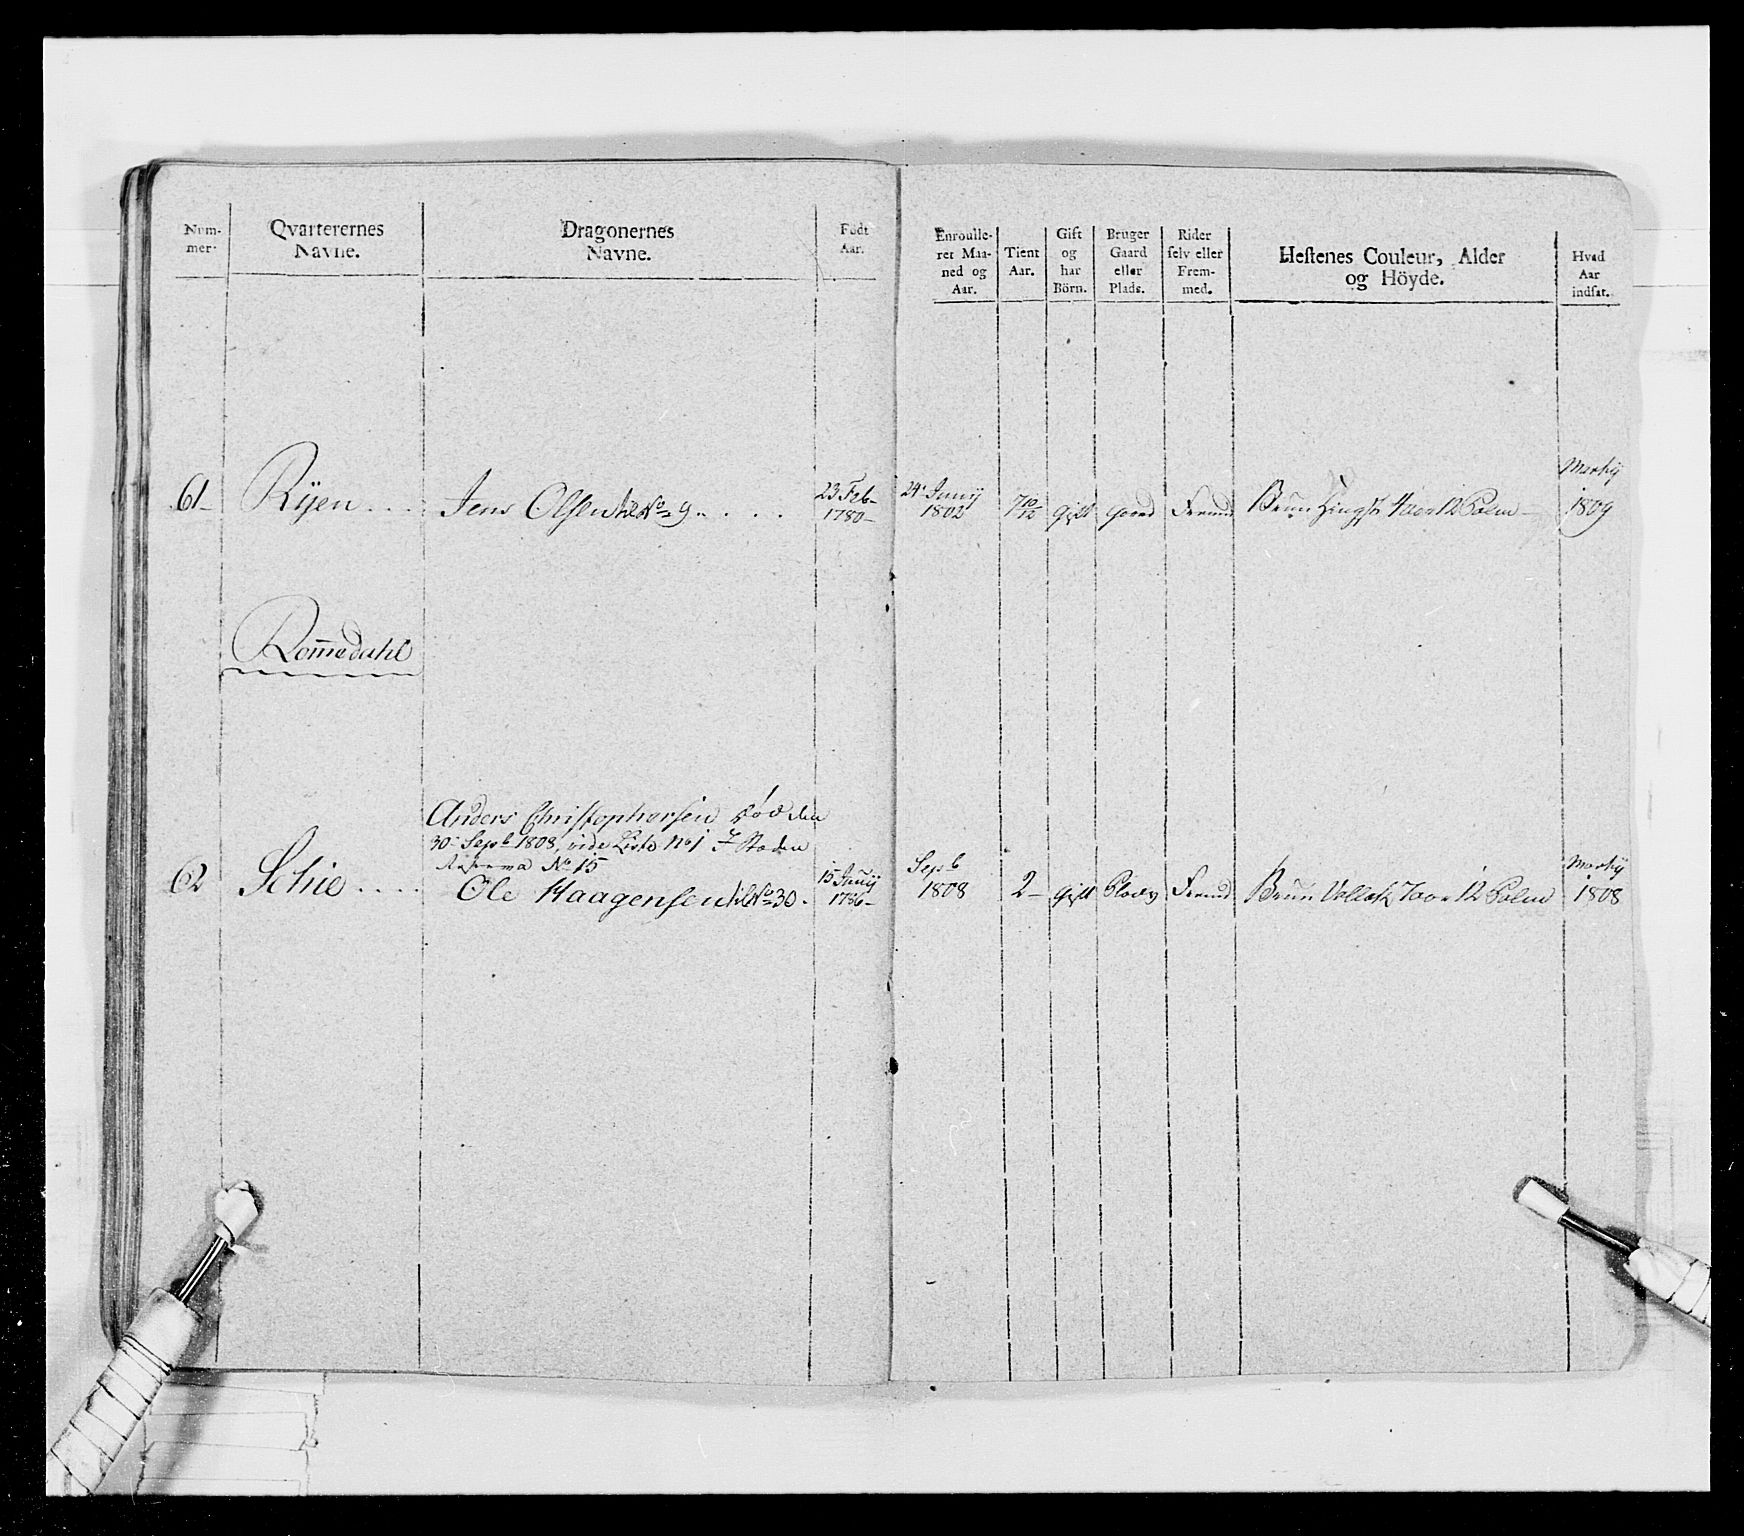 Num-
mer.
Qvarterernes
Navne.
Dragonernes
Navne.
Født
Aar.
Enroulle-
ret Maa-
ned og
Aar.
Tient
Aar.
Gift
og
har
Börn.
Bruger
Gaard
eller
Plads.
Rider
selv eller
Frem-
med.
Hestenes Couleur, Alder
og Höyde.
Hvad
Aar
indsat.
61 Ryen .... Jens Olsen No 9 .. 23 Feb 1780 24 Junÿ 1802 7 10/12 gift Gaard Fremd Bruun Hingst 4 aar 12 Palm 1809
Rom̅edahl
Anders Christophersen død den
30 Sepb 1808, vide Liste No 1 I Staden
No 15
62 Schie .... Ole Haagensen No 30 . 15 Junÿ 1786 Sepb 1808 2 gift Plads Fremd Bruun Vallak 7 aar 12 Palm 1808